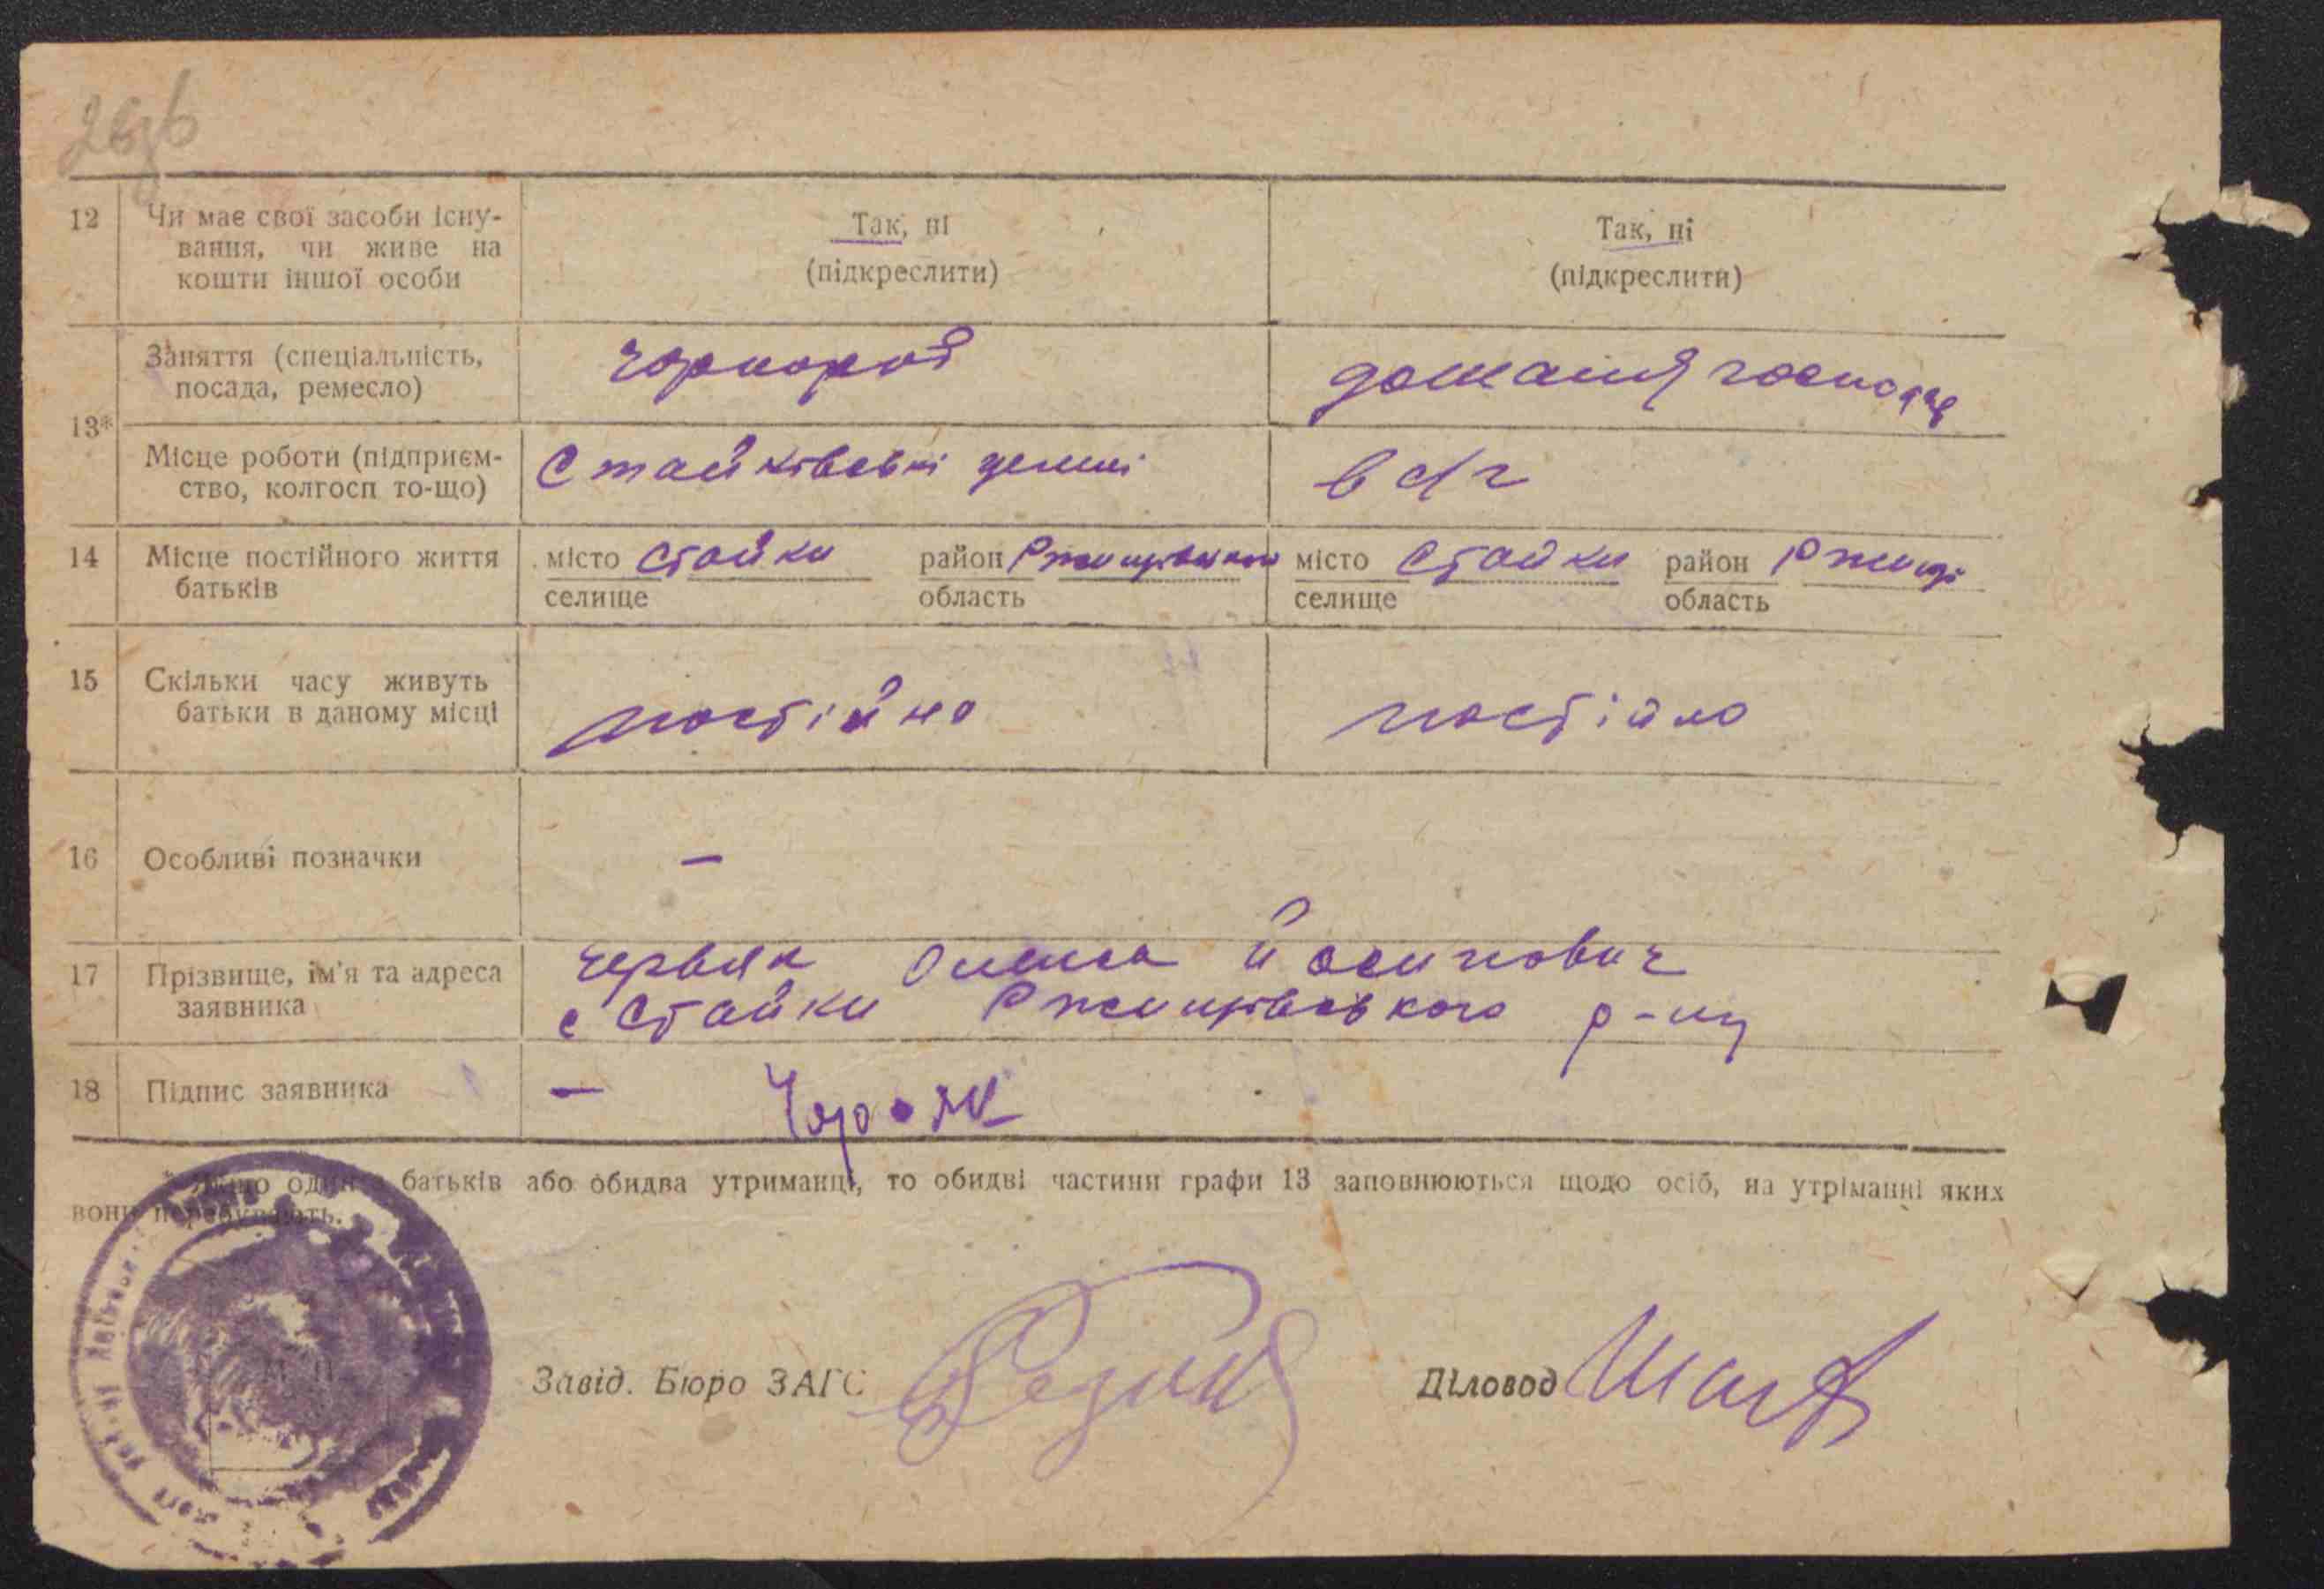 12 Чи має свої засоби існу-
вання, чи живе на
кошти іншої особи
Так, ні
(підкреслити)
Так, ні
(підкреслити)
13*
Заняття (спеціальність,
посада, ремесло)
чорнороб
домашня господар
Місце роботи (підприєм-
ство, колгосп то-що)
Стайківській
в с/г
14 Місце постійного життя
батьків
місто Стайки район Ржищівського
селище область
місто Стайки район Ржищі
селище область
15 Скільки часу живуть
батьки в даному місці
постійно
постійно
16 Особливі позначки
—
17 Прізвище, ім'я та адреса
заявника
Червяк Олекса Йосипович
с Стайки Ржищівського р-ну
18 Підпис заявника
—
* Якщо один з батьків або обидва утриманці, то обидві частини графи 13 заповнюються щодо осіб, на утріманні яких
вони перебувають.
М. П.
Завід. Бюро ЗАГС
Діловод